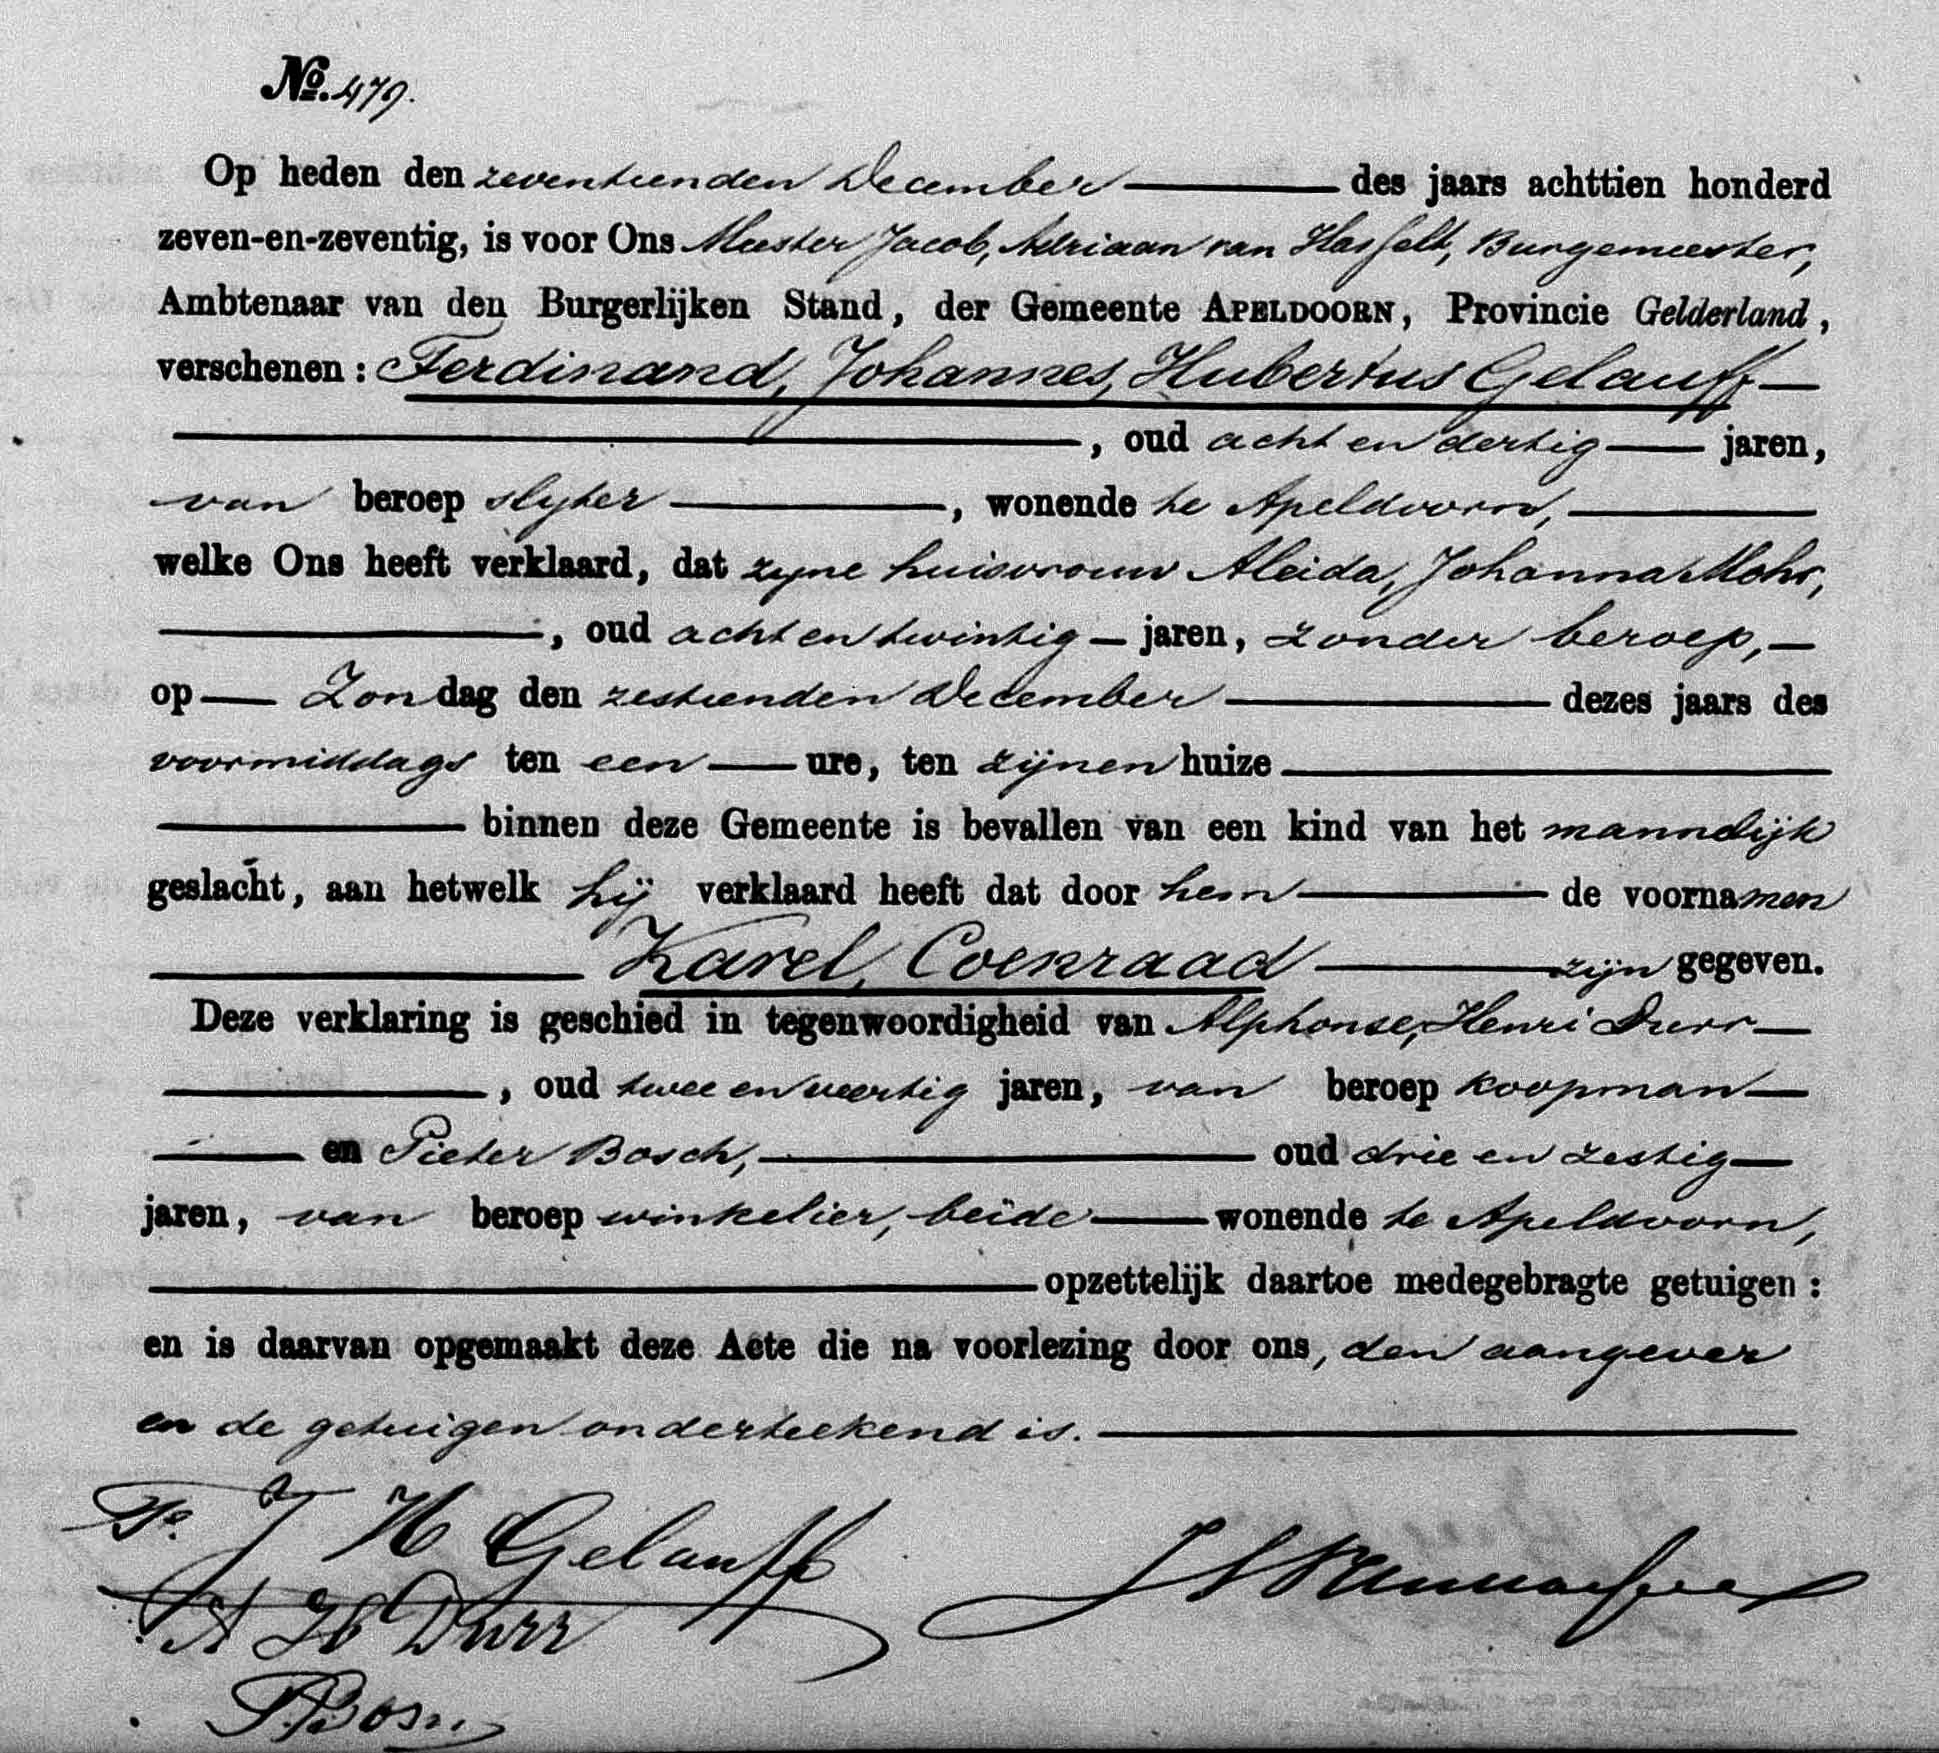 No. 479.
Op heden den zeventienden December des jaars achttien honderd
zeven-en-zeventig, is voor Ons Meester Jacob, Adriaan van Hasselt, Burgemeester,
Ambtenaar van den Burgerlijken Stand, der Gemeente APELDOORN, Provincie Gelderland,
verschenen: Ferdinand, Johannes, Hubertus Gelauff
, oud acht en dertig jaren,
van beroep slyter, wonende te Apeldoorn,
welke Ons heeft verklaard, dat zyne huisvrouw Aleida, Johanna Mohr,
, oud acht en twintig jaren, zonder beroep,
op Zondag den zestienden December dezes jaars des
voormiddags ten een ure, ten zijnen huize
binnen deze Gemeente is bevallen van een kind van het mannelijk
geslacht, aan hetwelk hij verklaard heeft dat door hem de voornamen
Karel, Coenraad zijn gegeven.
Deze verklaring is geschied in tegenwoordigheid van Alphonse, Henri Durr
, oud twee en veertig jaren, van beroep koopman
en Pieter Bosch, oud drie en zestig
jaren, van beroep winkelier, beide wonende te Apeldoorn,
opzettelijk daartoe medegebragte getuigen:
en is daarvan opgemaakt deze Acte die na voorlezing door ons, den aangever
en de getuigen onderteekend is.
F. J H Gelauff
A H Durr
P. Bosch